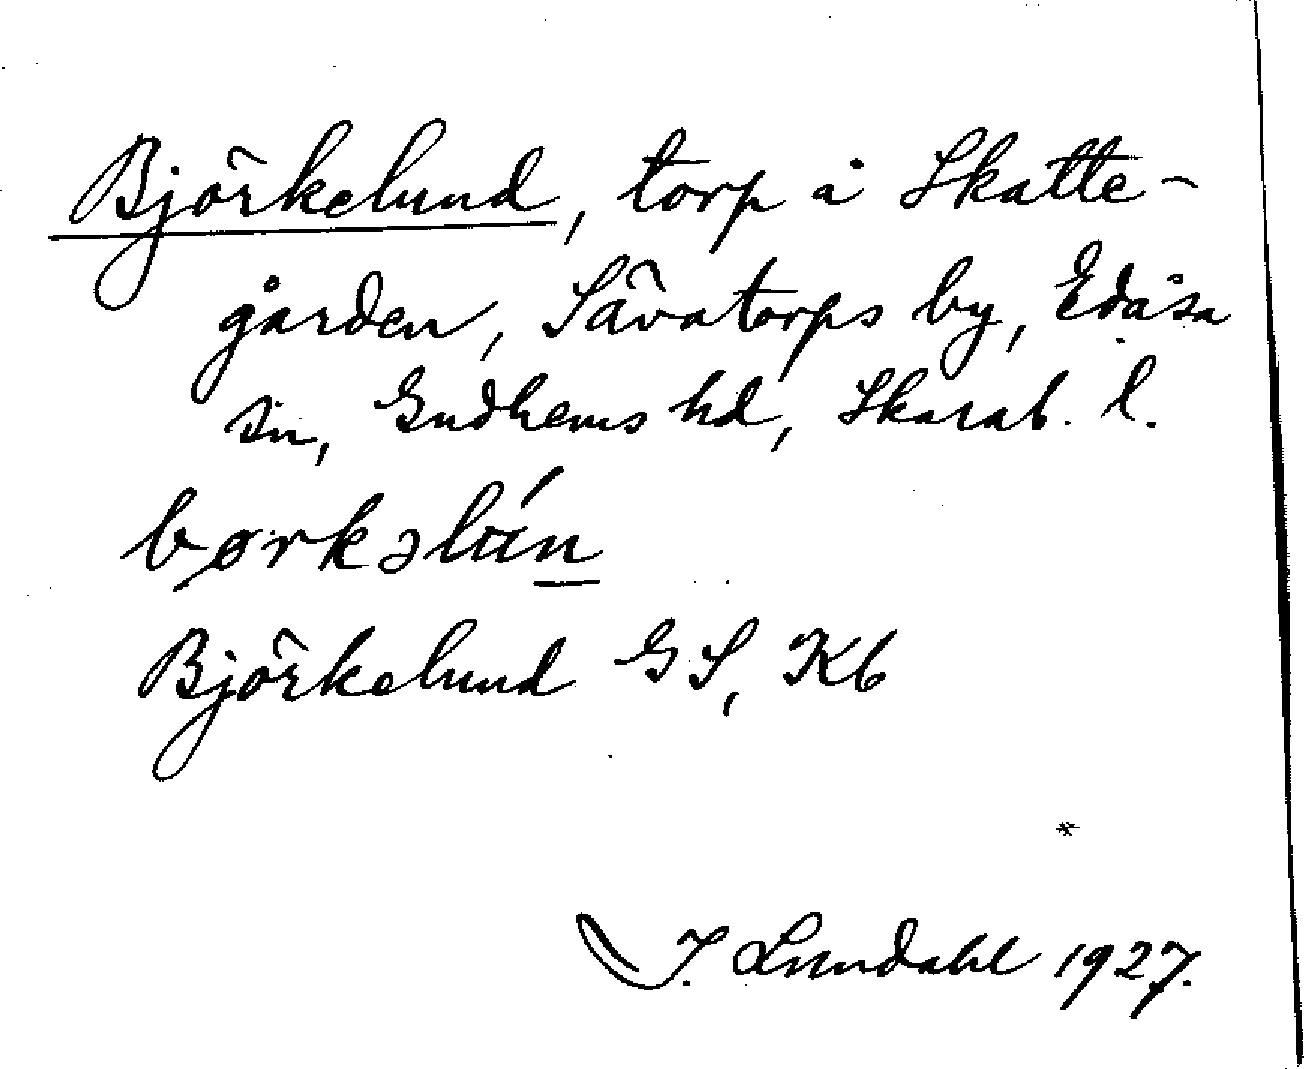 Björkelund, torp å Skatte-
gården, Sävatorps by, Edåsa
sn, Gudhems hd, Skarab. l.
børkəlún
Björkelund GS, Kb
*
I. Lundahl 1927.